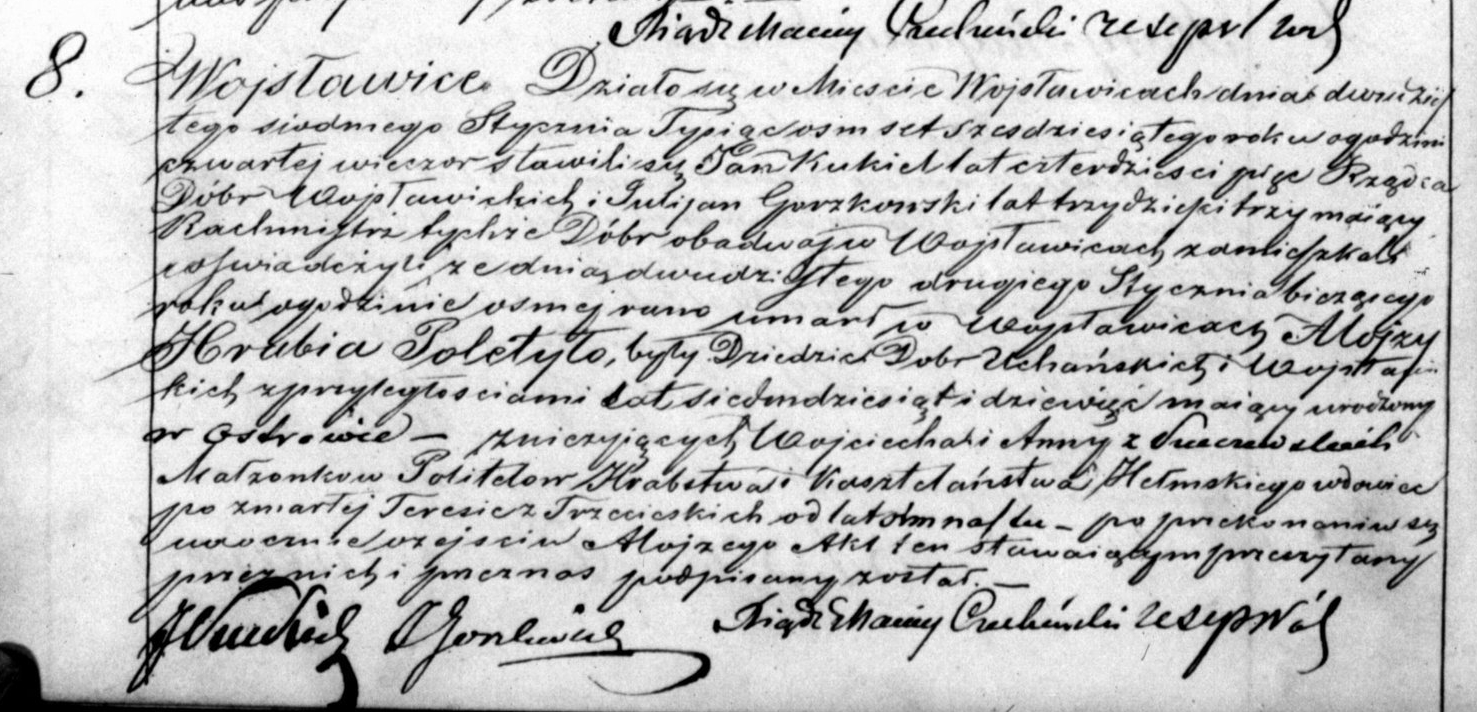 Xiądz Maciej
8. Wojsławice. Działo się w Mieście Wojsławicach dnia dwudzie
stego siodmego Stycznia Tysiąc osm set szesdziesiątego roku o godzinie
czwartej wieczor stawili się Jan Kukiel lat czterdziesci pięc Rządca
Dóbr Wojsławickich i Julijan Gorzkowski lat trzydzieści trzy maiący
Rachmistrz tychże Dóbr obadwaj w Wojsławicach zamieszkali
i oswiadczyli że dnia dwudziestego drugiego Stycznia bieżącego
roku o godzinie osmej rano umarł w Wojsławicach Alojzy
Hrabia Poletyło, były Dziedzic Dobr Uchańskich i Wojsławic
kich z przyległosciami lat siedmdziesiąt i dziewięć maiący urodzony
w Ostrowice — z nieżyjących Wojciecha i Anny z
Małzonkow Politełow Hrabstwa i Kasztelaństwa Hełmskiego wdowiec
po zmarłej Teresie z Trzecieskich od lat osmnastu — po przekonaniu się
naocznie o zejsciu Alojzego Akt ten stawaiącym przeczytany
przez nich i przez nas podpisany został. —
Xiądz Maciej